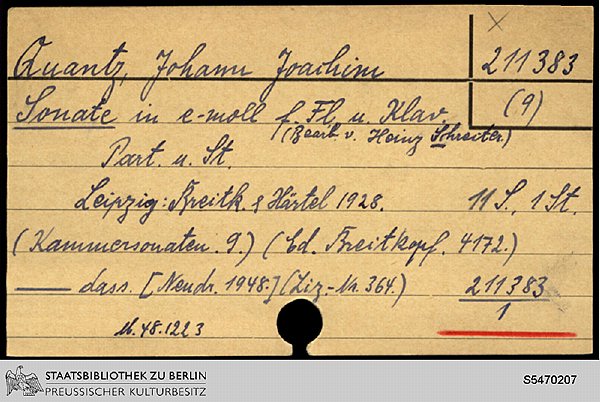 ×
Quantz, Johann Joachim 211383
Sonate in e-moll f. Fl. u. Klav. (9)
(Bearb. v. Heinz Schreiter.)
Part. u. St.
Leipzig: Breitk. & Härtel 1928. 11 S., 1 St.
(Kammersonaten. 9.) (Ed. Breitkopf. 4172.)
—— dass. [Neudr. 1948.] (Liz.-Nr. 364.) 211383
1
M. 48.1223
STAATSBIBLIOTHEK ZU BERLIN
PREUSSISCHER KULTURBESITZ
S5470207